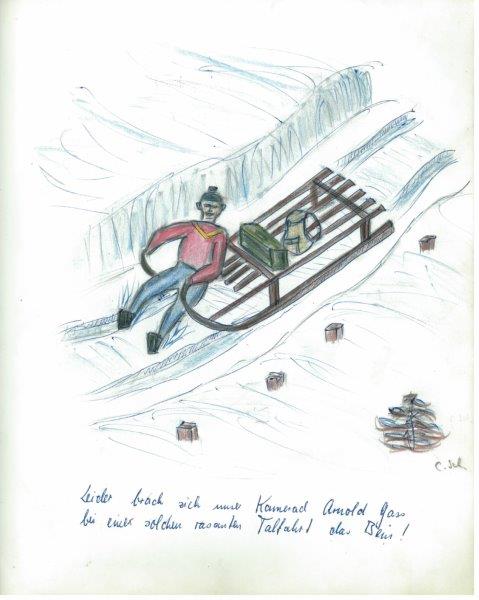 C. Sch
Leider brach sich unser Kamerad Arnold Gass
bei einer solchen rasanten Talfahrt das Bein!